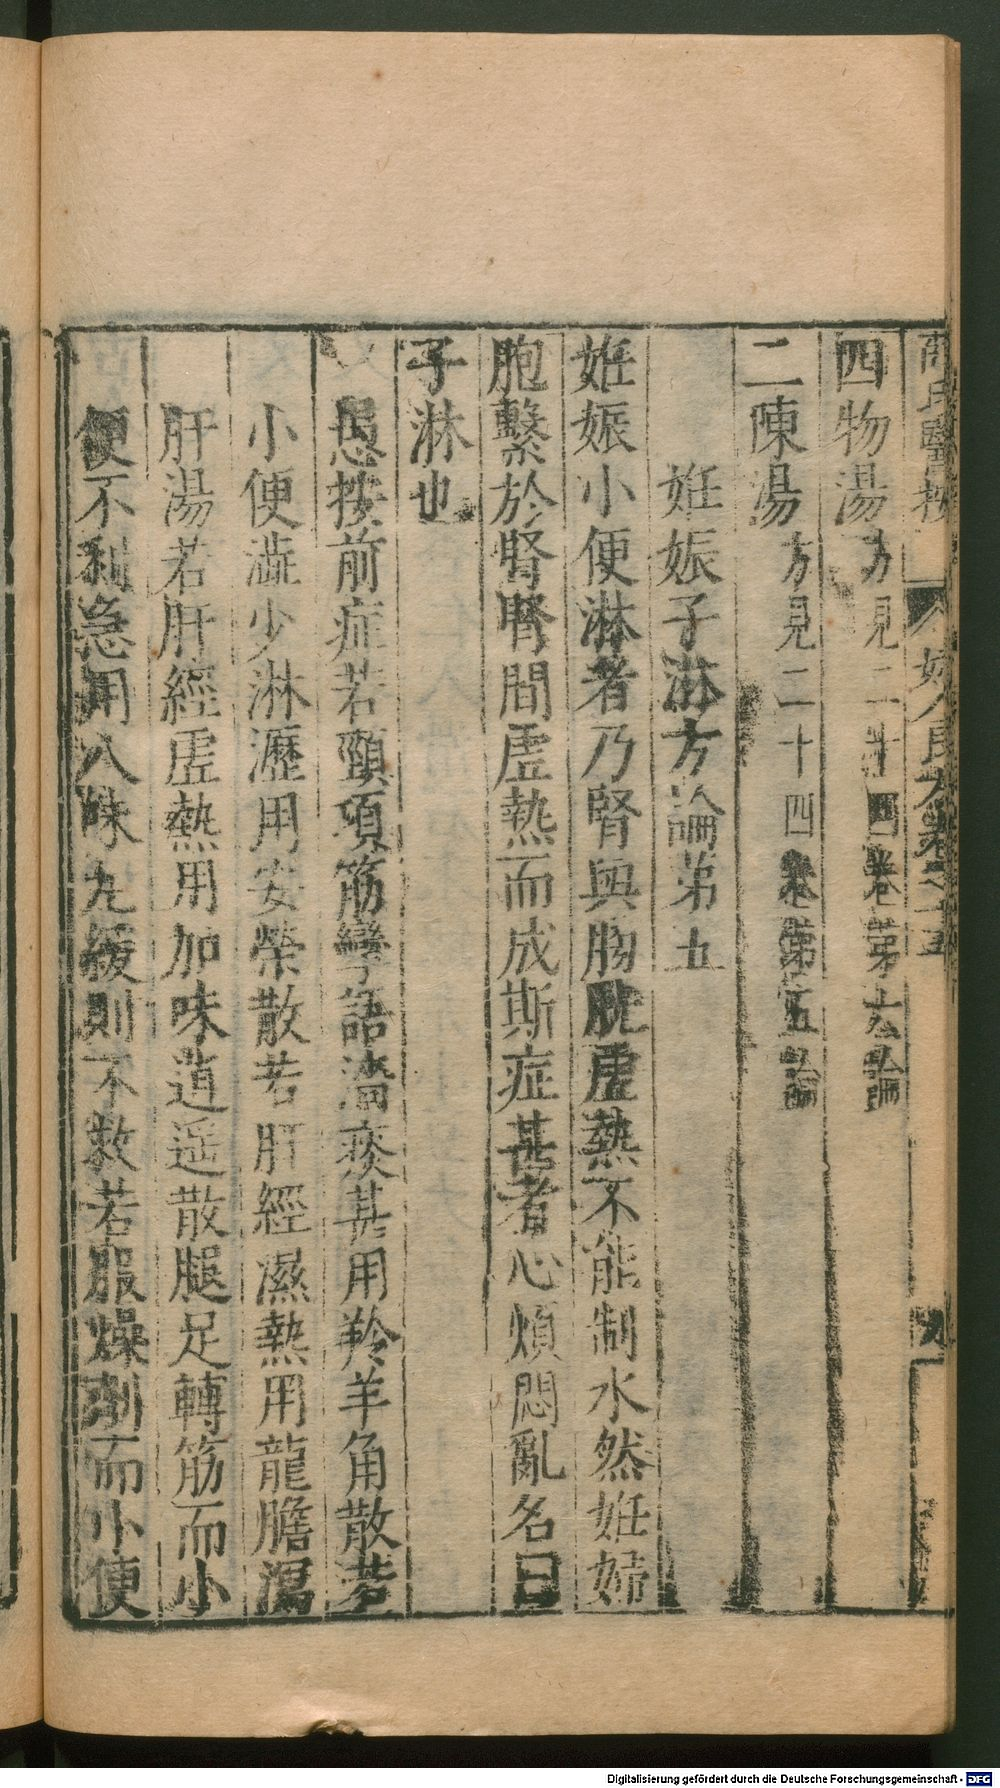 四物湯方見二十四卷第六論
二陳湯方見二十四卷第五論
妊娠子淋方論第五
妊娠小便淋者乃腎與膀胱虛熱不能制水然妊婦
胞繫於腎腎間虛熱而成斯症甚者心煩悶亂名曰
子淋也
愚按前症若頸項筋攣語澁痰甚用羚羊角散若
小便澁少淋瀝用安榮散若肝經濕熱用龍膽瀉
肝湯若肝經虛熱用加味逍遥散腿足轉筋而小
便不利急用八味丸緩則不救若服燥劑而小便
Digitalisierung gefördert durch die Deutsche Forschungsgemeinschaft - DFG